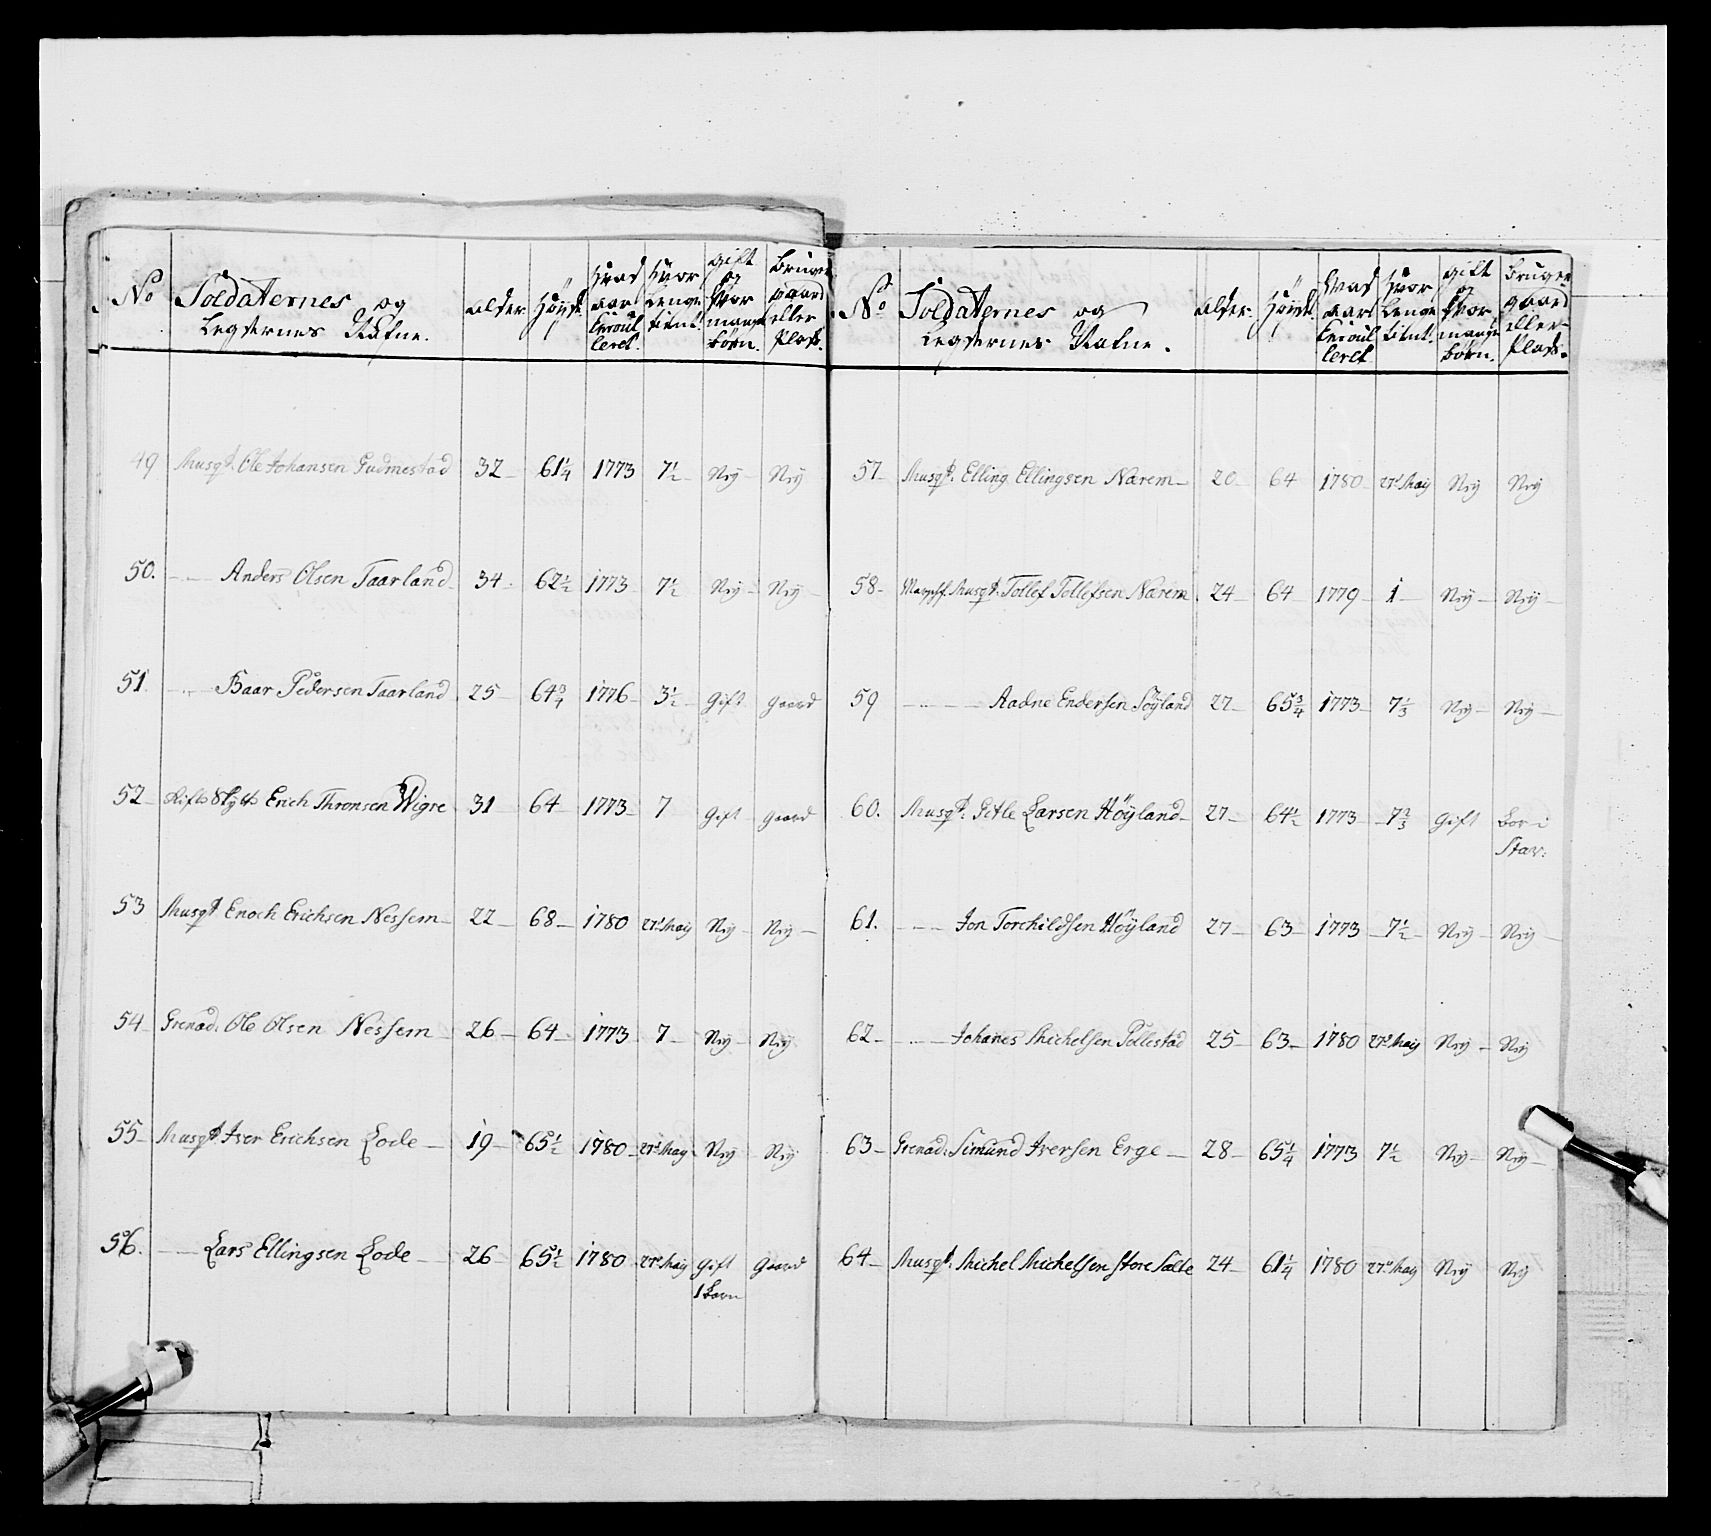 No | Soldaternes og Legdernes Nafne. | alder | Høyde | Hvad aar Enroulleret | Hvor Lenge tient | gift og Hvor mange børn. | bruger gaard eller Plads.
49 | Musqt. Ole Johansen Gudmestad | 32 | 61¼ | 1773 | 7½ | Nÿ | Nÿ
50. | — Anders Olsen Taarland | 34 | 62½ | 1773 | 7½ | Nÿ | Nÿ
51. | — Baar Pedersen Taarland | 25 | 64¾ | 1776 | 3½ | Gift | gaard
52 | Erich Thronsen Wigre | 31 | 64 | 1773 | 7 | Gift | gaard
53 | Musqt Enoch Erichsen Nessem | 22 | 68 | 1780 | 27d Maÿ | Nÿ | Nÿ
54 | Grenad: Ole Olsen Nessem | 26 | 64 | 1773 | 7 | Nÿ | Nÿ
55 | Musqt. Iver Erichsen Lode | 19 | 65½ | 1780 | 27d Maÿ | Nÿ | Nÿ
56. | — Lars Ellingsen Lode | 26 | 65½ | 1780 | 27d Maÿ | Gift | Gaard
1 barn
No | Soldaternes og Legdernes Nafne. | alder | Høyde | Hvad aar Enroulleret | Hvor Lenge tient. | gift og Hvor mange børn. | bruger gaard eller Plads.
57 | Musqt. Elling Ellingsen Nærem | 20 | 64 | 1780 | 27d Maÿ | Nÿ | Nÿ
58 | Musqt. Tollef Tollefsen Nærem | 24 | 64 | 1779 | 1 | Nÿ | Nÿ
59 | — Aadne Endersen Söyland | 27 | 65¾ | 1773 | 7⅓ | Nÿ | Nÿ
60. | Musqt: Gitle Larsen Höÿland | 27 | 64½ | 1773 | 7⅔ | Gift | bor i
Stav:
61. | — Jon Torchildsen Höÿland | 27 | 63 | 1773 | 7½ | Nÿ | Nÿ
62 | — Johanes Michelsen Pollestad | 25 | 63 | 1780 | 27d Maÿ | Nÿ | Nÿ
63 | Grenad: Simund Iversen Erge | 28 | 65¼ | 1773 | 7½ | Nÿ | Nÿ
64 | Musqt: Michel Michelsen store Salte | 24 | 61¼ | 1780 | 27d Maÿ | Nÿ | Nÿ